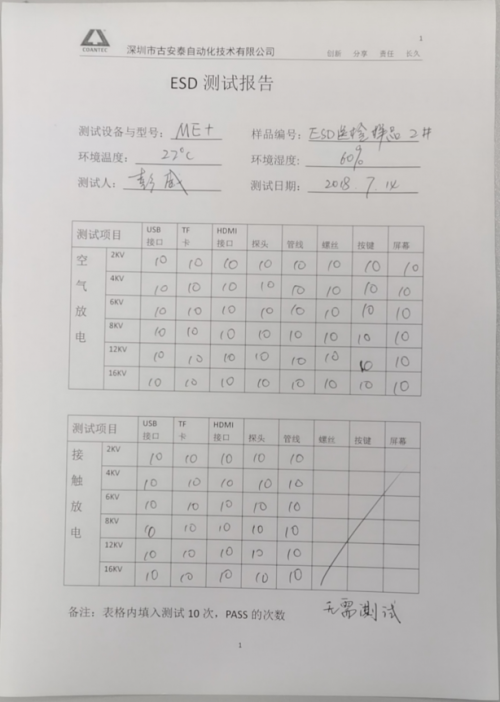 1
COANTEC 深圳市古安泰自动化技术有限公司 创新 分享 责任 长久
ESD 测试报告
测试设备与型号: ME+ 样品编号: ESD送检样品 2#
环境温度: 27℃ 环境湿度: 60%
测试人: 彭威 测试日期: 2018. 7. 14
测试项目 USB接口 TF卡 HDMI接口 探头 管线 螺丝 按键 屏幕
空气放电
2KV 10 10 10 10 10 10 10 10
4KV 10 10 10 10 10 10 10 10
6KV 10 10 10 10 10 10 10 10
8KV 10 10 10 10 10 10 10 10
12KV 10 10 10 10 10 10 10 10
16KV 10 10 10 10 10 10 10 10
测试项目 USB接口 TF卡 HDMI接口 探头 管线 螺丝 按键 屏幕
接触放电
2KV 10 10 10 10 10
4KV 10 10 10 10 10
6KV 10 10 10 10 10
8KV 10 10 10 10 10
12KV 10 10 10 10 10
16KV 10 10 10 10 10
备注: 表格内填入测试 10 次，PASS 的次数 无需测试
1